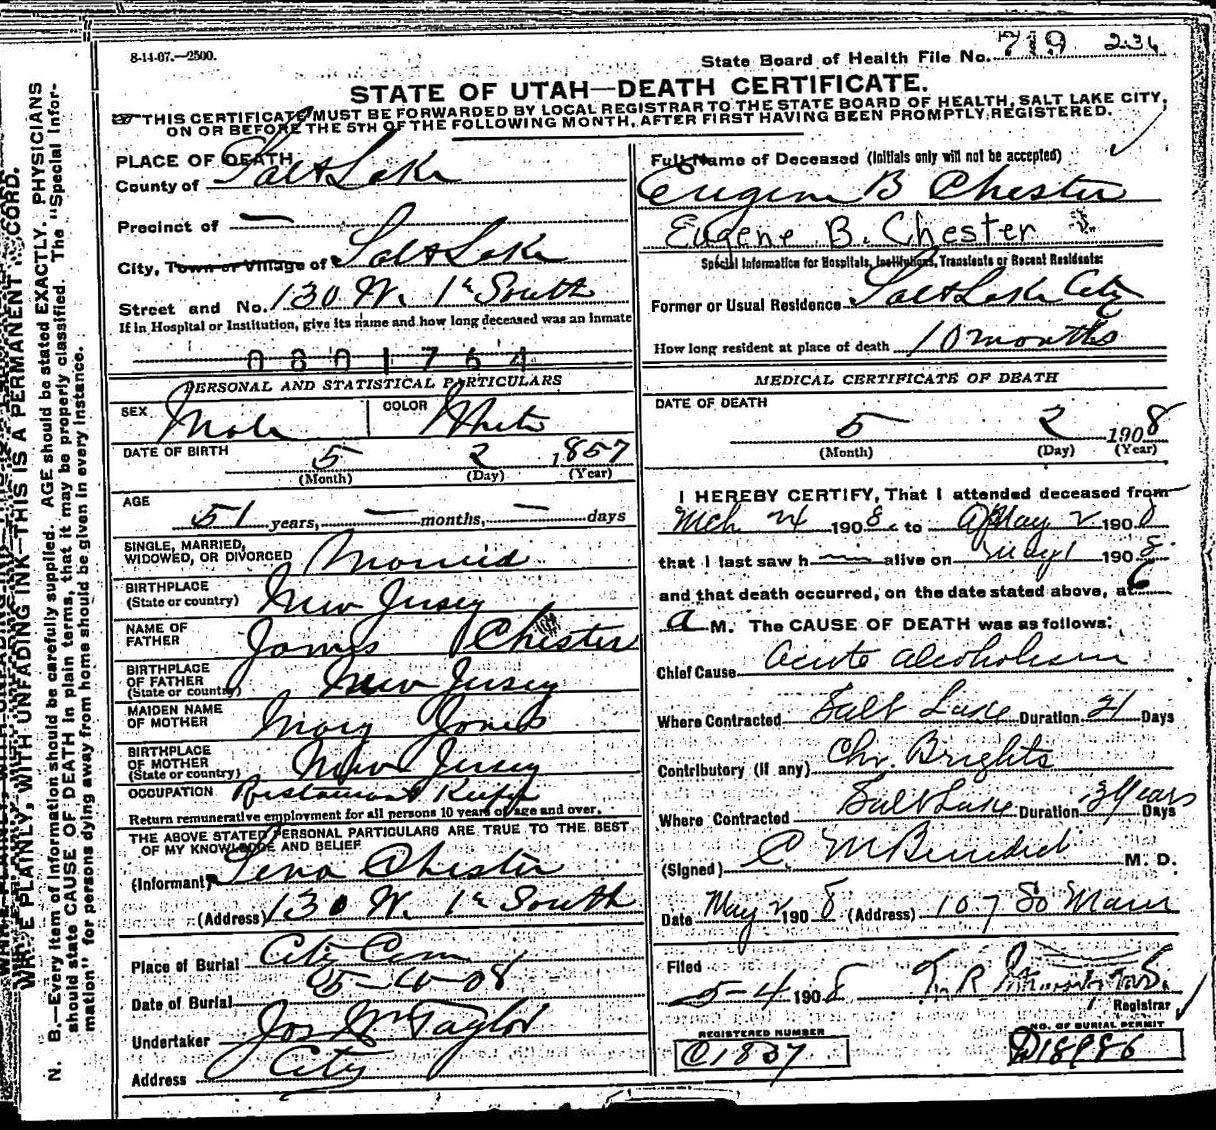 8-14-07.—2500.
State Board of Health File No. 719 236
STATE OF UTAH—DEATH CERTIFICATE.
THIS CERTIFICATE MUST BE FORWARDED BY LOCAL REGISTRAR TO THE STATE BOARD OF HEALTH, SALT LAKE CITY,
ON OR BEFORE THE 5TH OF THE FOLLOWING MONTH, AFTER FIRST HAVING BEEN PROMPTLY REGISTERED.
PLACE OF DEATH
County of Salt Lake
Precinct of —
City, Town or Village of Salt Lake
Street and No. 130 W. 1st South
If in Hospital or Institution, give its name and how long deceased was an inmate
0801764
PERSONAL AND STATISTICAL PARTICULARS
SEX Male
COLOR White
DATE OF BIRTH 5 2 1857
(Month) (Day) (Year)
AGE 51 years, — months, — days
SINGLE, MARRIED,
WIDOWED, OR DIVORCED Married
BIRTHPLACE
(State or country) New Jersey
NAME OF
FATHER James Chester
BIRTHPLACE
OF FATHER
(State or country) New Jersey
MAIDEN NAME
OF MOTHER Mary Jones
BIRTHPLACE
OF MOTHER
(State or country) New Jersey
OCCUPATION Restaurant Keeper
Return remunerative employment for all persons 10 years of age and over.
THE ABOVE STATED PERSONAL PARTICULARS ARE TRUE TO THE BEST
OF MY KNOWLEDGE AND BELIEF
(Informant) Lena Chester
(Address) 130 W. 1st South
Place of Burial City Cem
Date of Burial
Undertaker Jos Wm Taylor
Address City
Full Name of Deceased (Initials only will not be accepted)
Eugene B Chester
Eugene B. Chester
Special Information for Hospitals, Institutions, Transients or Recent Residents:
Former or Usual Residence Salt Lake City
How long resident at place of death 10 months
MEDICAL CERTIFICATE OF DEATH
DATE OF DEATH
5 2 1908
(Month) (Day) (Year)
I HEREBY CERTIFY, That I attended deceased from
Mch 24 1908 to May 2 1908
that I last saw h— alive on May 1 1908
and that death occurred, on the date stated above, at 6
a M. The CAUSE OF DEATH was as follows:
Chief Cause Acute alcoholism
Where Contracted Salt Lake Duration 21 Days
Contributory (if any) Chr. Brights
Where Contracted Salt Lake Duration 3 years Days
(Signed) C. M Benedict M. D.
Date May 2 1908 (Address) 107 So Main
Filed
5-4 1908
Registrar
REGISTERED NUMBER
C1837
NO. OF BURIAL PERMIT
D18986
N. B.—Every item of information should be carefully supplied. AGE should be stated EXACTLY. PHYSICIANS
should state CAUSE OF DEATH in plain terms, that it may be properly classified. The "Special Infor-
mation" for persons dying away from home should be given in every instance.
WRITE PLAINLY, WITH UNFADING INK—THIS IS A PERMANENT RECORD.